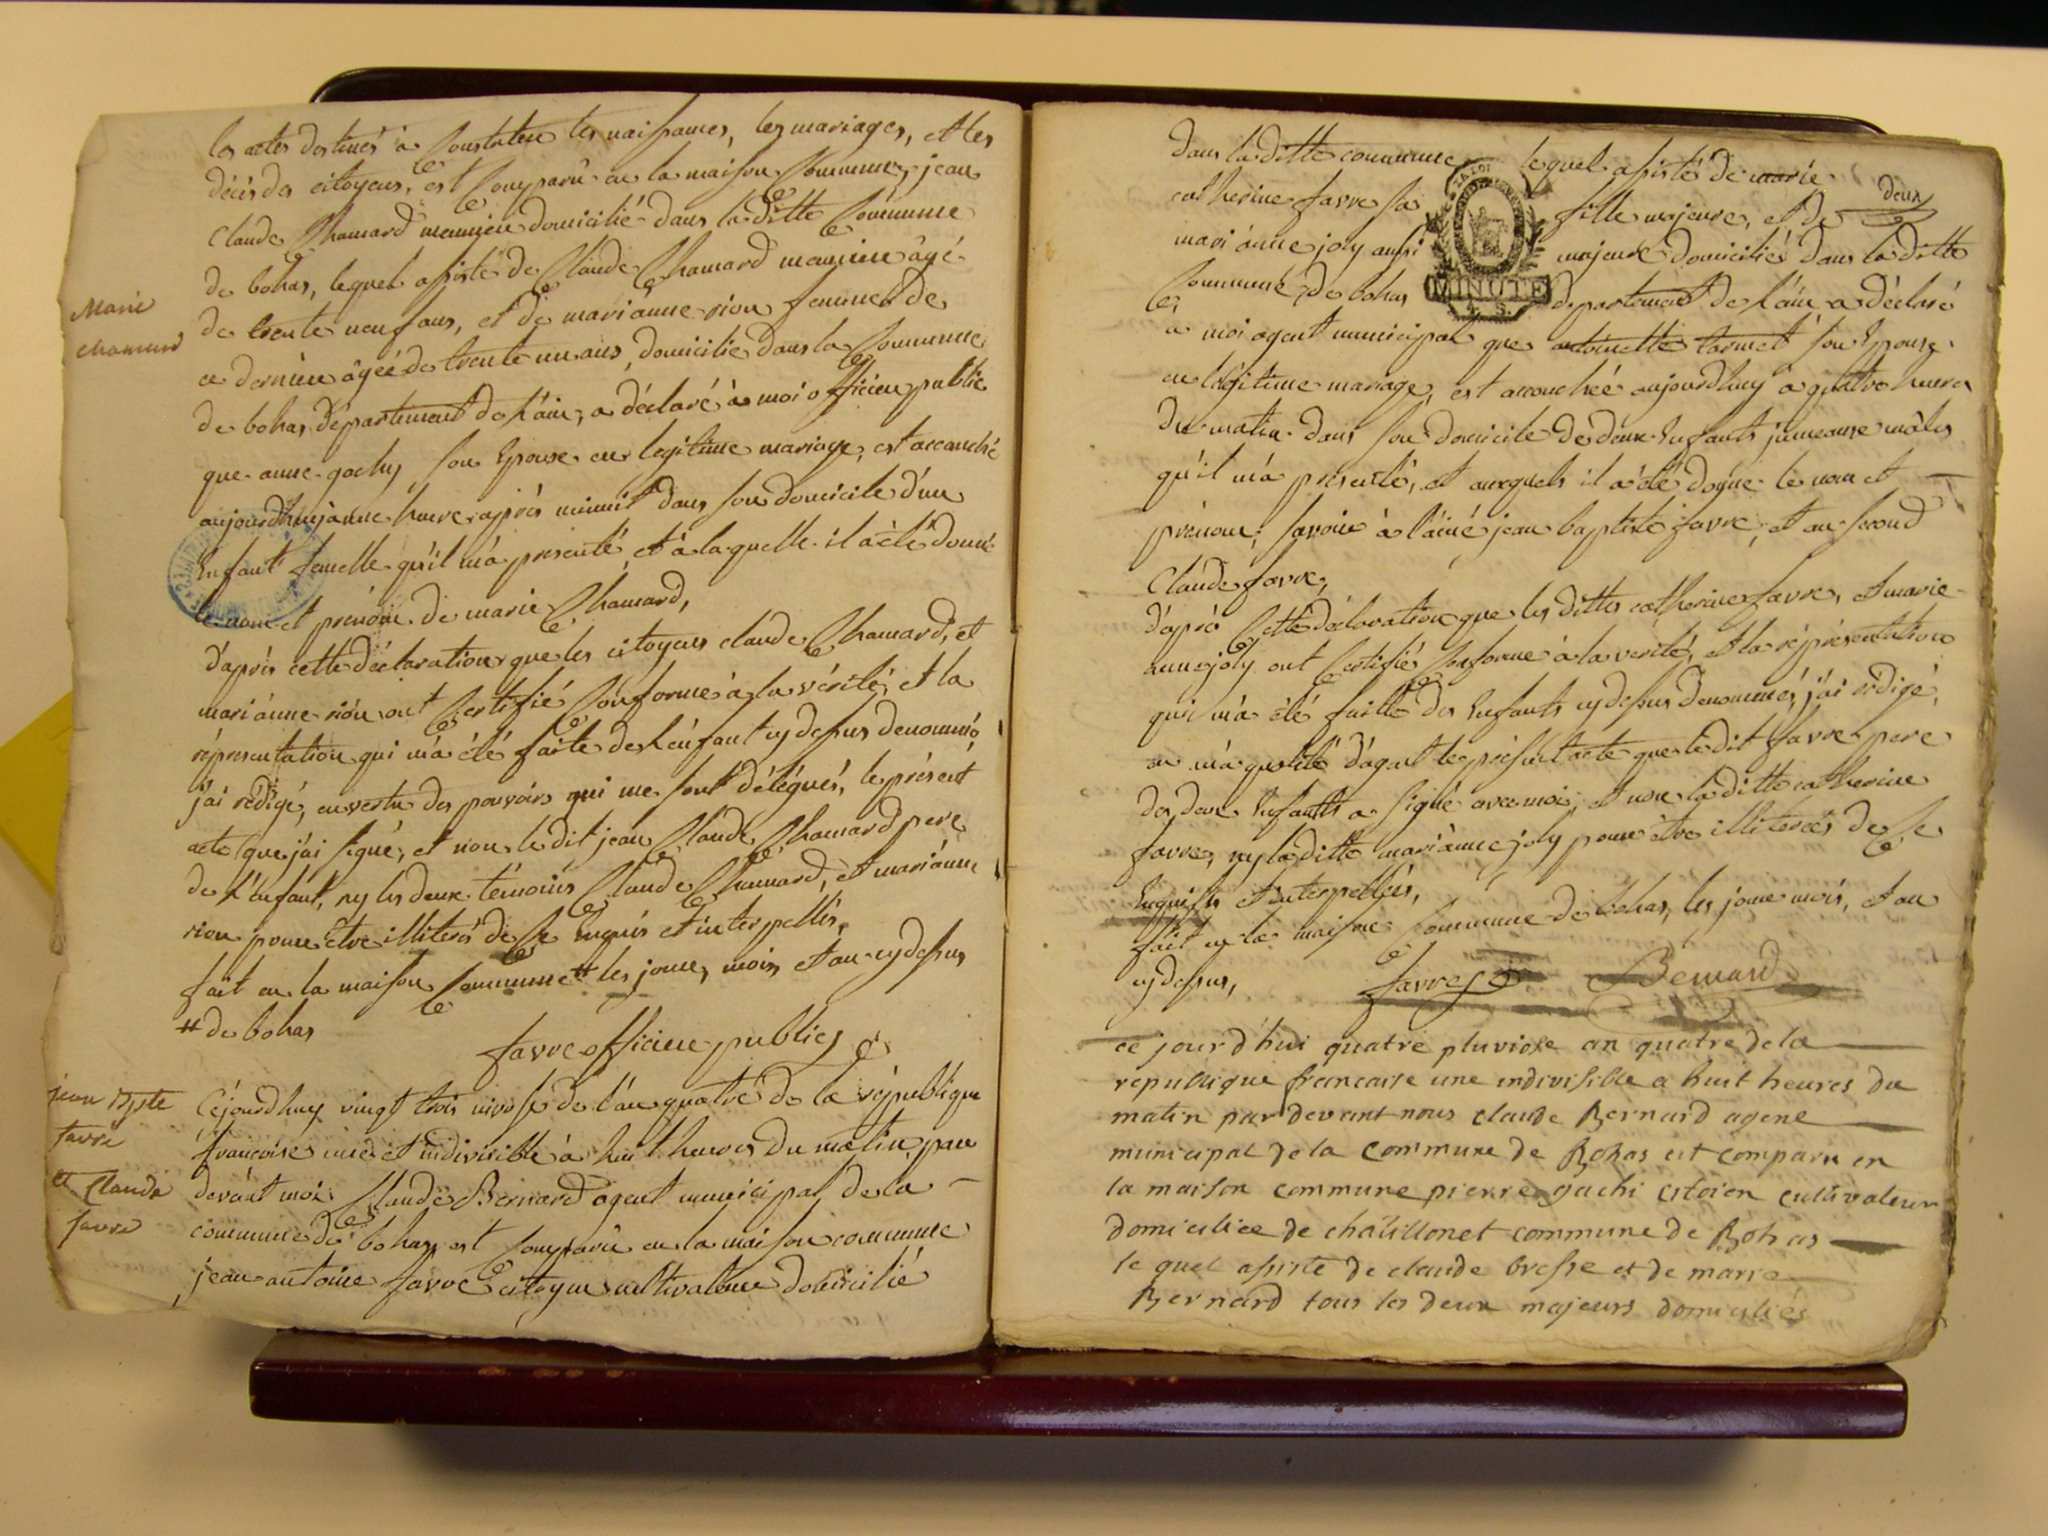 les actes destinés à Constater les naissances, les mariages, et les
décès des citoyens, est Comparû en la maison Commune, jean
Claude Chamard meunier domicilié dans laditte Commune
de bohas, lequel assisté de Claude Chamard meunier âgé
de trente neuf ans, et de mariánne rion femme de
ce dernier âgée de trente un ans, domicilie dans la Commune
de bohas département de l'áin, a déclaré à moi officier public
que anne gochy son Epouse en légitime mariage, est accouché
aujourdhuy à une heure après minuit dans son domicile d'un
Enfant femelle qu'il m'a presenté, et à laquelle il a été donné
le nom et prénom de marie Chamard,
d'après cette déclaration que les citoyens claude Chamard, et
mariánne rión ont Certifié Conforme à la vérité, et la
répresentation qui m'a été faite de l'énfant cy dessus denommé,
j'ai rédigé, en vertu des pouvoirs qui me sont délégués, le présent
acte que j'ai signé, et non le dit jean Claude Chamard pere
de l'énfant, ny les deux témoins Claude Chamard, et mariánne
rion pour être illiterés de Ce Enquis et interpellés,
fait en la maison Commune # les jour, mois et an cy dessus
# de bohas
favre officier public
Marie
chamard
jean Bpte
favre
et Claude
favre
Céjourdhuy vingt trois nivose de l'an quatré de la république
françoise une et indivisible à huit heures du matin, par
devánt moi Claude Bernard agent municipal de la
commune de bohas, est Comparû en la maison commune
jean antoine favre citoyen cultivateur domicilié
dans laditte commune lequel assisté de marie
catherine favre sa fille majeure, et de deux
mariánne joly aussi majeure domiciliés dans laditte
Commune de bohas département de l'áin, a déclaré
à moi agent municipal que antoinette tarmet son Epouse
en légitime mariage, est accouchée aujourdhuy à quatre heures
du matin dans son domicile de deux Enfants jumeaux mâles
qu'il m'a presenté, et auxquels il a été donné le nom et
prénom, savoir à l'áiné jean baptiste favre, et au second
Claude favre,
d'après Cette déclaration que les dittes catherine favre, et marie
anne joly ont Certifié Conforme à la verité, et la répresentation
qui m'a été faitte des Enfants cy dessus denommés, j'ai rédigé,
en ma qualité d'agent le présent acte que ledit favre pere
des deux Enfants a signé avec moi, et non laditte catherine
favre, ny laditte mariánne joly pour être illiterées de Ce
Enquises et interpellées,
fait en la maison Commune de bohas, les jour mois, et an
cy dessus, favre Bernard
LA LOI
MINUTE
ce jour d'hui quatre pluviose an quatre de la
republique francaise une indivisible a huit heures du
matin par devant nous claude Bernard agent
municipal de la commune de Bohas est comparu en
la maison commune pierre gachi citoien cultivateur
domiciliee de châtillonet commune de Bohas
le quel assisté de claude bresse et de marie
Bernard tous les deux majeurs domiciliés